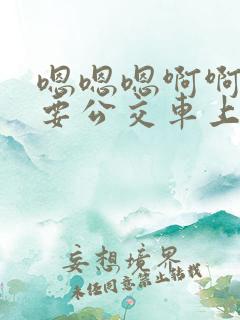 嗯嗯嗯啊啊
要公交車上
妄想境界
未经同意禁止转载